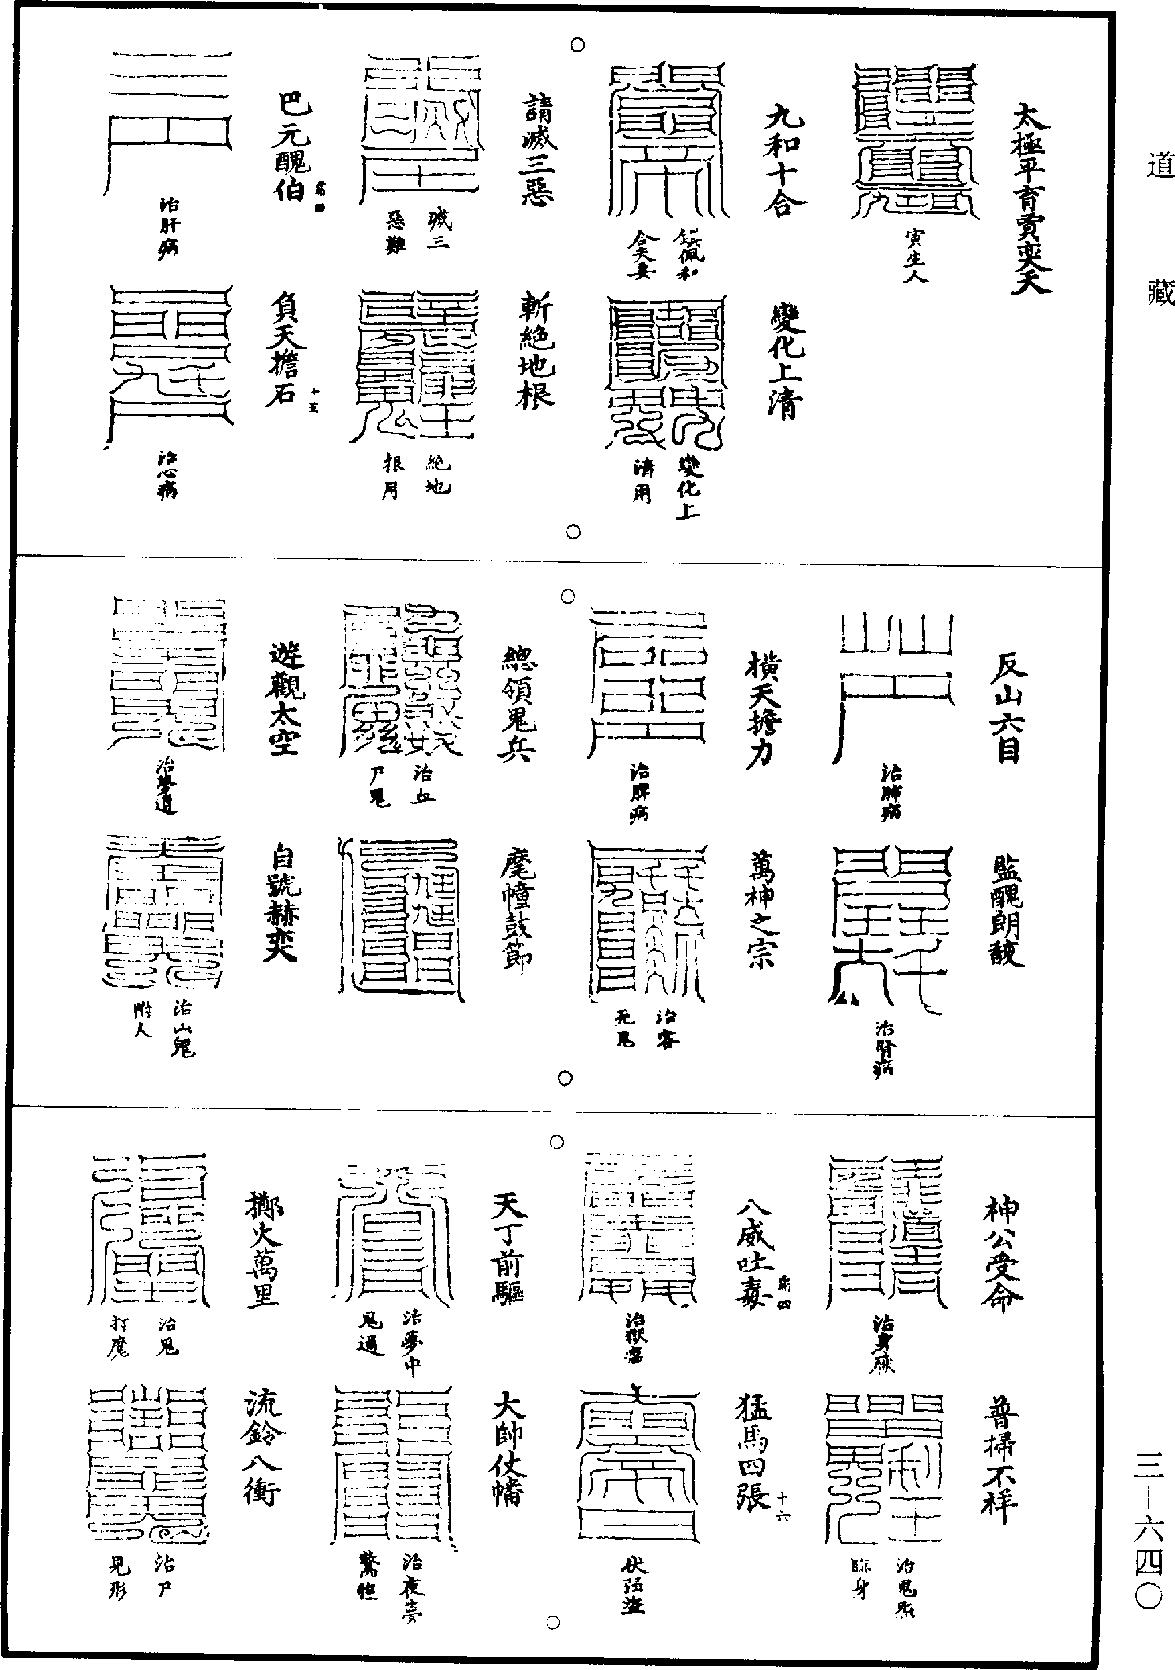 道藏
太極平育賈奕天
寅生人
九和十合
佩和
合夫妻
變化上清
變化上
清用
請滅三惡
滅三
惡難
斬絕地根
絕地
根用
巴元醜伯
第四
治肝病
負天擔石
十五
治心病
反山六目
治肺病
監醜朗馥
治腎病
橫天擔力
治脾病
萬神之宗
治客
死鬼
總領鬼兵
治血
尸鬼
麾幢鼓節
遊觀太空
治學道
自號赫奕
治山鬼
附人
神公受命
治身
普掃不祥
治鬼
臨身
八威吐毒
第四
治獄
猛馬四張
十六
伏強盜
天丁前驅
治夢中
鬼通
大帥仗幡
治夜夢
驚怪
擲火萬里
治鬼
打魔
流鈴八衝
治尸
見形
三—六四〇